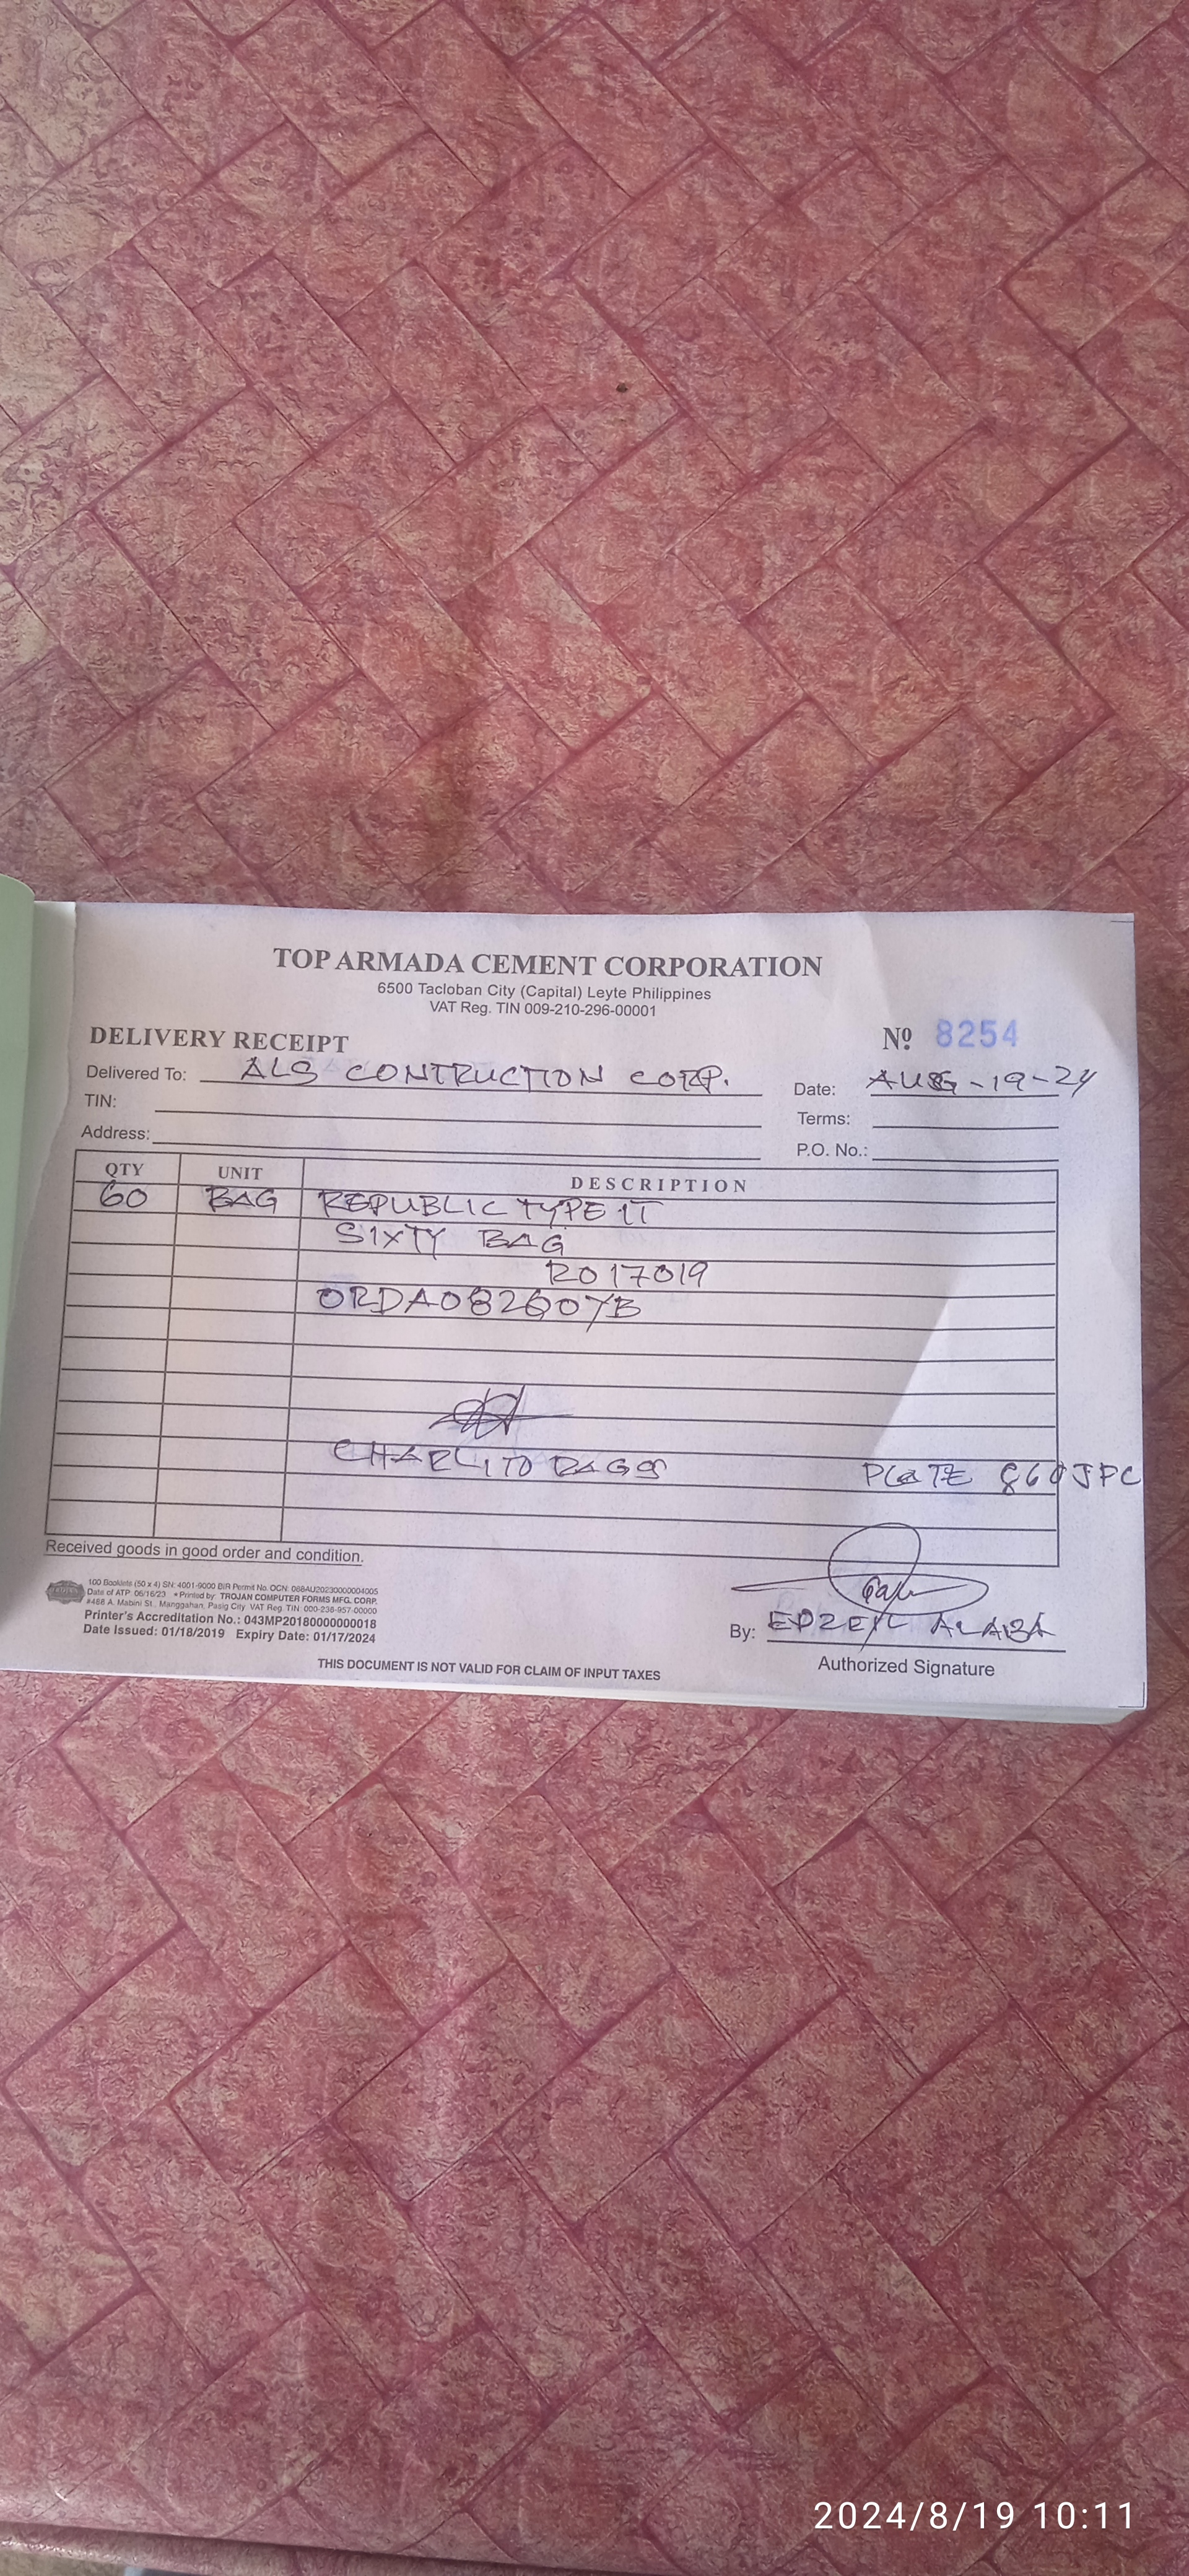 TOP ARMADA CEMENT CORPORATION
6500 Tacloban City (Capital) Leyte Philippines
VAT Reg. TIN 009-210-296-00001
DELIVERY RECEIPT
Nº 8254
Delivered To: ALS CONTRUCTION CORP.
Date: AUG-19-24
TIN:
Terms:
Address:
P.O. No.:
QTY UNIT DESCRIPTION
60 BAG REPUBLIC TYPE 1T
SIXTY BAG
R017019
CHARLITO
PLATE JPC
Received goods in good order and condition.
100 Booklets (50 x 4) SN: 4001-9000 BIR Permit No. OCN: 088AU20230000004005
Date of ATP: 06/16/23 • Printed by: TROJAN COMPUTER FORMS MFG. CORP.
#488 A. Mabini St., Manggahan, Pasig City VAT Reg. TIN: 000-238-957-00000
Printer's Accreditation No.: 043MP20180000000018
Date Issued: 01/18/2019 Expiry Date: 01/17/2024
By: EDZEL ALABA
Authorized Signature
THIS DOCUMENT IS NOT VALID FOR CLAIM OF INPUT TAXES
2024/8/19 10:11